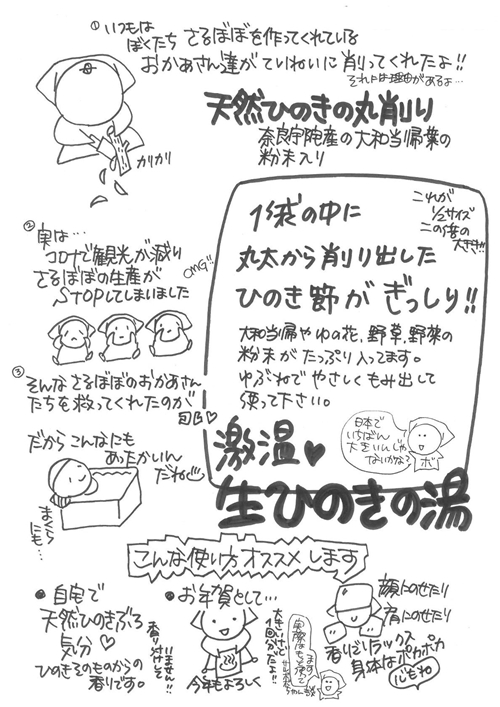 ① いつもは
ぼくたち さるぼぼを作ってくれている
おかあさん達が ていねいに 削ってくれたよ!!
それには理由があるよ…
天然ひのきの丸削り
奈良宇陀産の大和当帰葉の
粉末入り
カリカリ
これが
1/2サイズ
この倍の
大きさ!!
1袋の中に
丸太から削り出した
ひのき節が ぎっしり!!
大和当帰やゆの花、野草、野菜の
粉末がたっぷり入ってます。
ゆぶねでやさしくもみ出して
使って下さい。
② 実は…
コロナで観光が減り
さるぼぼの生産が
STOPしてしまいました
OMG!!
③ そんなさるぼぼのおかあさん
たちを救ってくれたのが
だからこんなにも
あったかいん
だね
まくら
にも…
日本で
いちばん
大きいんじゃ
ないかな?
ボ
激温♥
生ひのきの湯
こんな使い方オススメします
• 自宅で
天然ひのきぶろ
気分♡
ひのきそのものからの
香りです。
香り付けを
いません!!
• お年賀として…
今年もよろしく
大きいけど
1回分だよ!!
実際はもっと使て
ます
顔にのせたり
肩にのせたり
香りでリラックス
身体はポカポカ
心もね